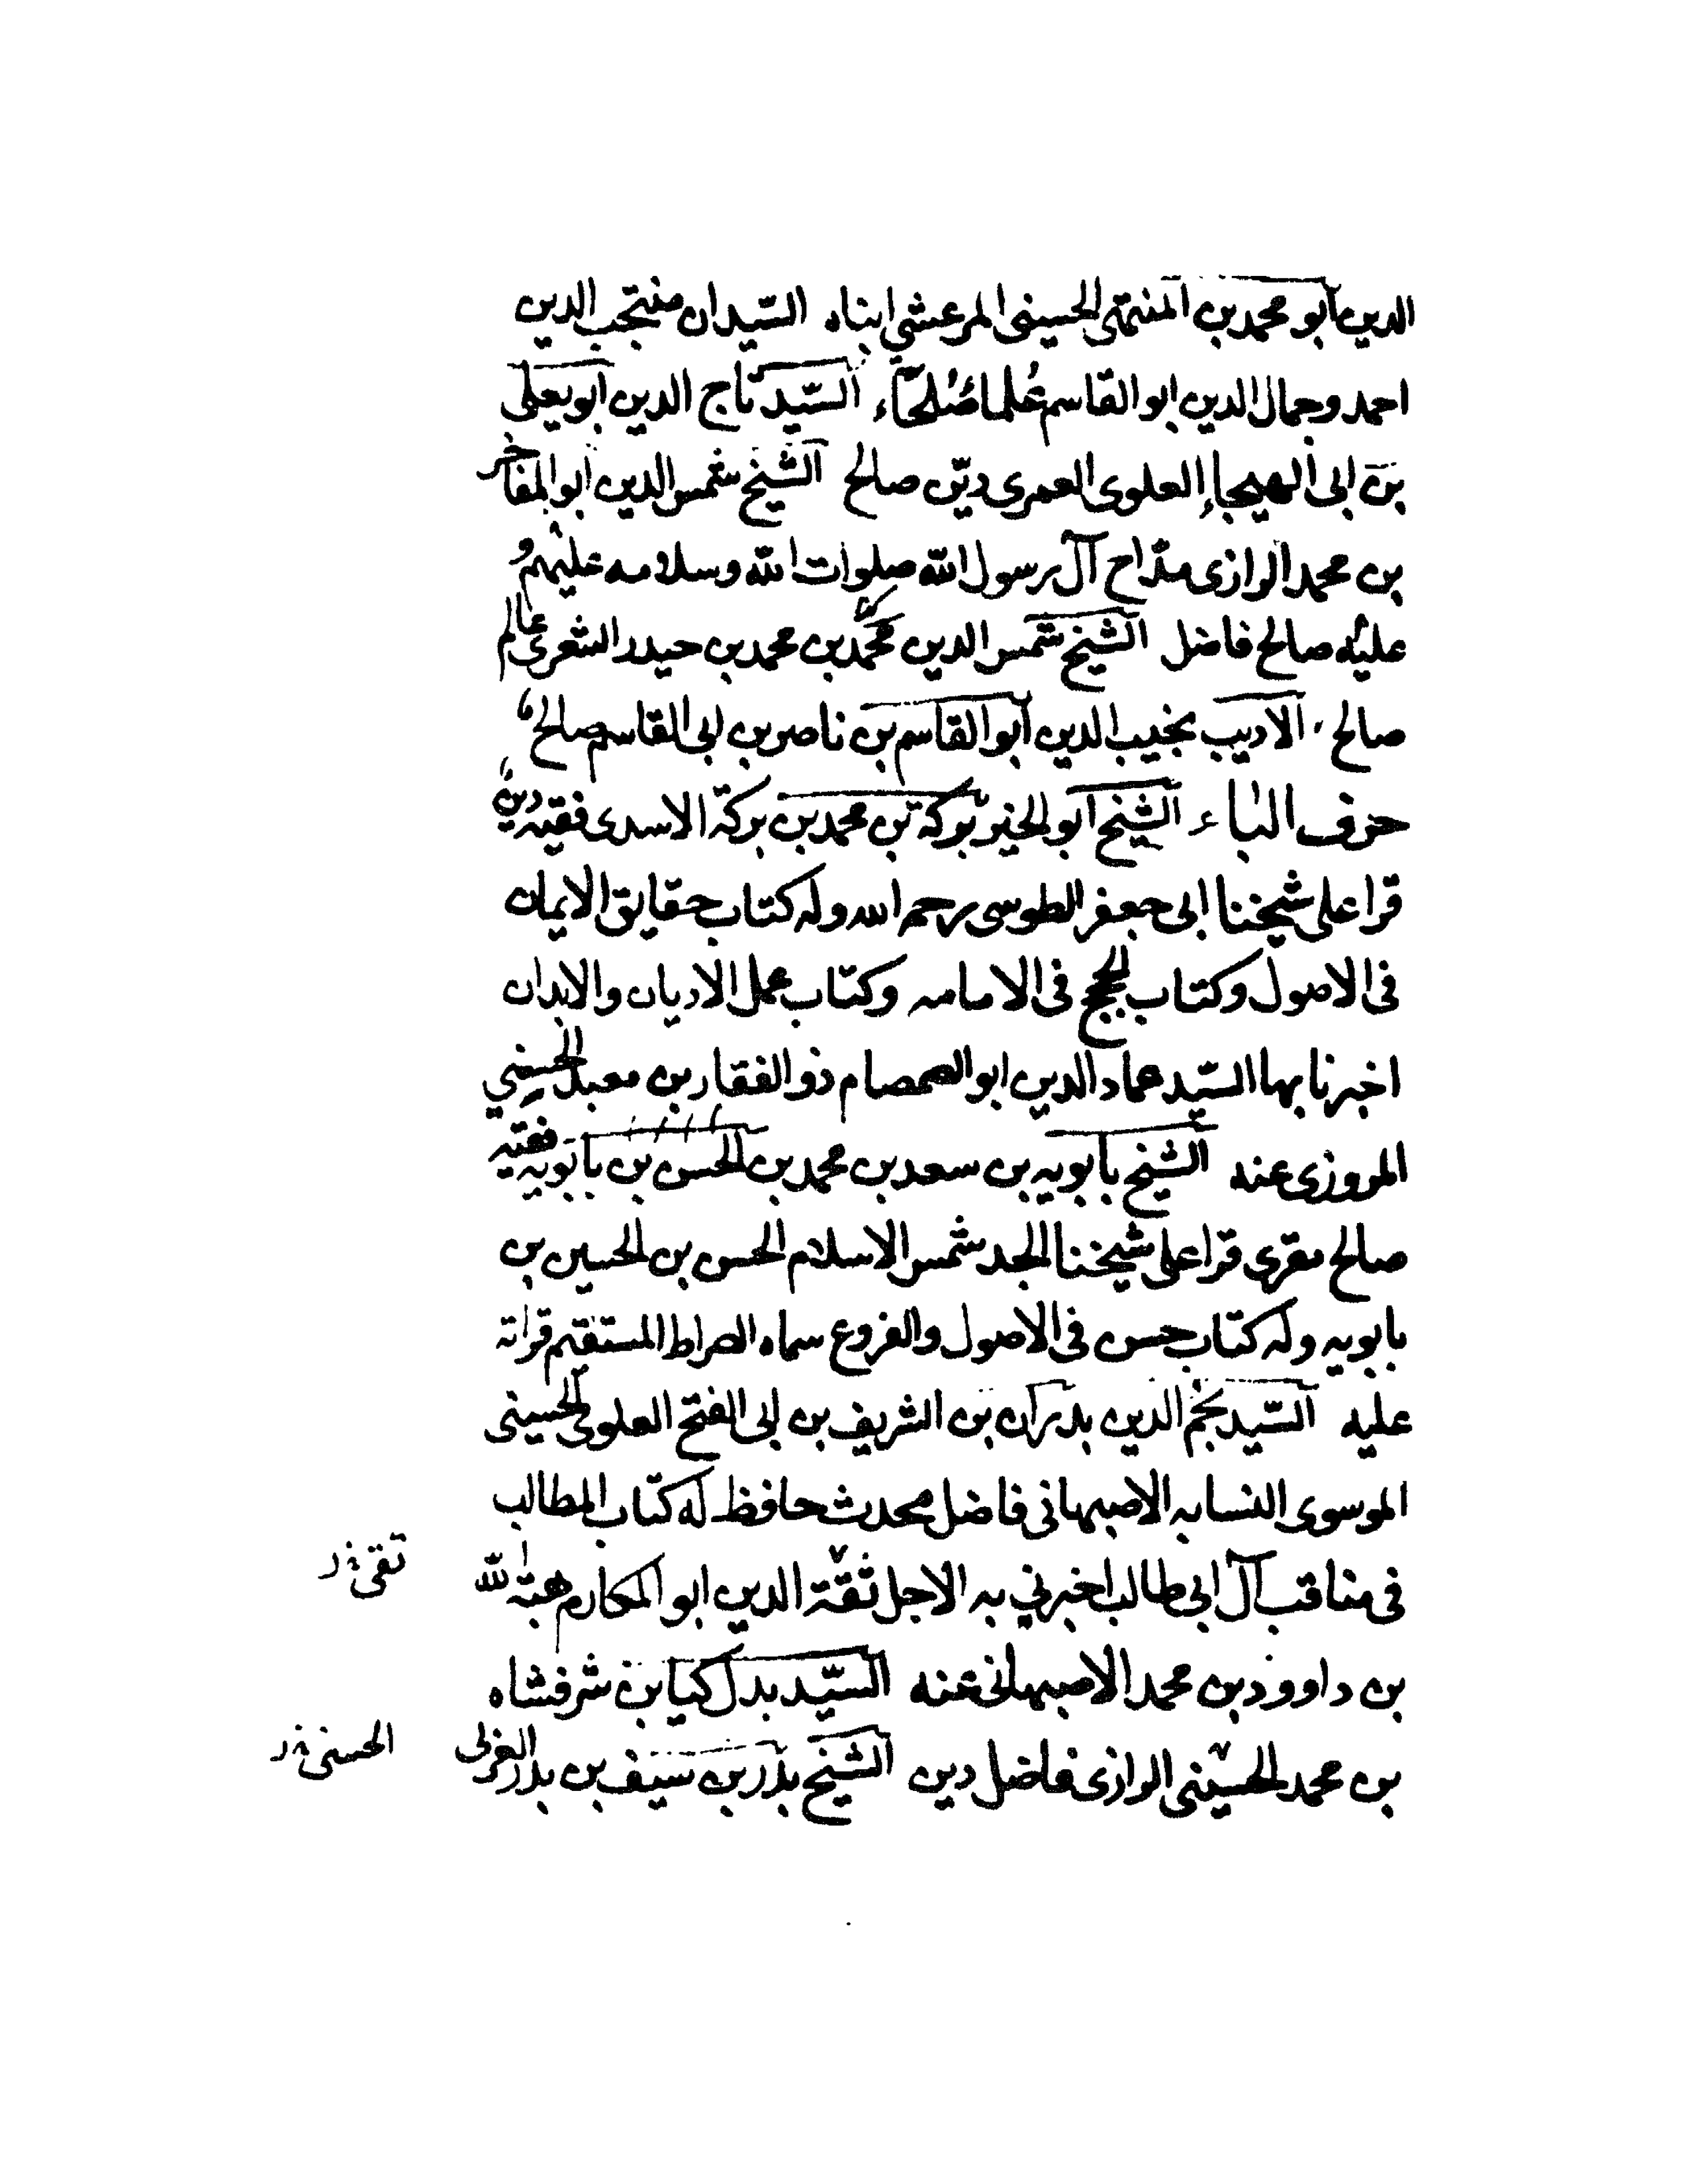 الدين ابو محمد بن المنتهى الحسينى المرعشي ابناه السّيدان منتجب الدين
احمد وجمال الدين ابو القاسم عُلماء صُلحاء السّيد تاج الدين ابو يعلى
بن ابى الهيجاء العلوى العمرى ديّن صالح الشيخ شمس الدين ابو المفاخر
بن محمد الرازى مدّاح آل رسول الله صلوات الله وسلامه عليهم و
عليه صالح فاضل الشيخ شمس الدين محمد بن محمد بن حيدر الشعرى عالم
صالح الاديب نجيب الدين ابو القاسم بن ناصر بن ابى القاسم صالح
حرف الباء الشيخ ابو الخير بركة بن محمد بن بركة الاسدى فقيه دين
قرا على شيخنا ابى جعفر الطوسى رحمه الله وله كتاب حقايق الايمان
فى الاصول وكتاب الحجج فى الامامه وكتاب عمل الاديان والابدان
اخبرنا بها السّيد عماد الدين ابو الصمصام ذو الفقار بن معبد الحسيني
المروزى عنه الشيخ بابويه بن سعد بن محمد بن الحسن بن بابويه فقيه
صالح مقرى قرا على شيخنا الجد شمس الاسلام الحسن بن الحسين بن
بابويه وله كتاب حسن فى الاصول والفروع سماه الصراط المستقيم قراته
عليه السّيد نجم الدين بدران بن الشريف بن ابى الفتح العلوى الحسينى
الموسوى النسابه الاصبهانى فاضل محدث حافظ له كتاب المطالب
فى مناقب آل ابى طالب اخبرني به الاجل ثقة الدين ابو المكارم هبة الله
تقى
بن داوود بن محمد الاصبهانى عنه السّيد بدل كيا بن شرفشاه
بن محمد الحسينى الرازى فاضل دين الشيخ بدر بن سيف بن بدر العربى
الحسنى